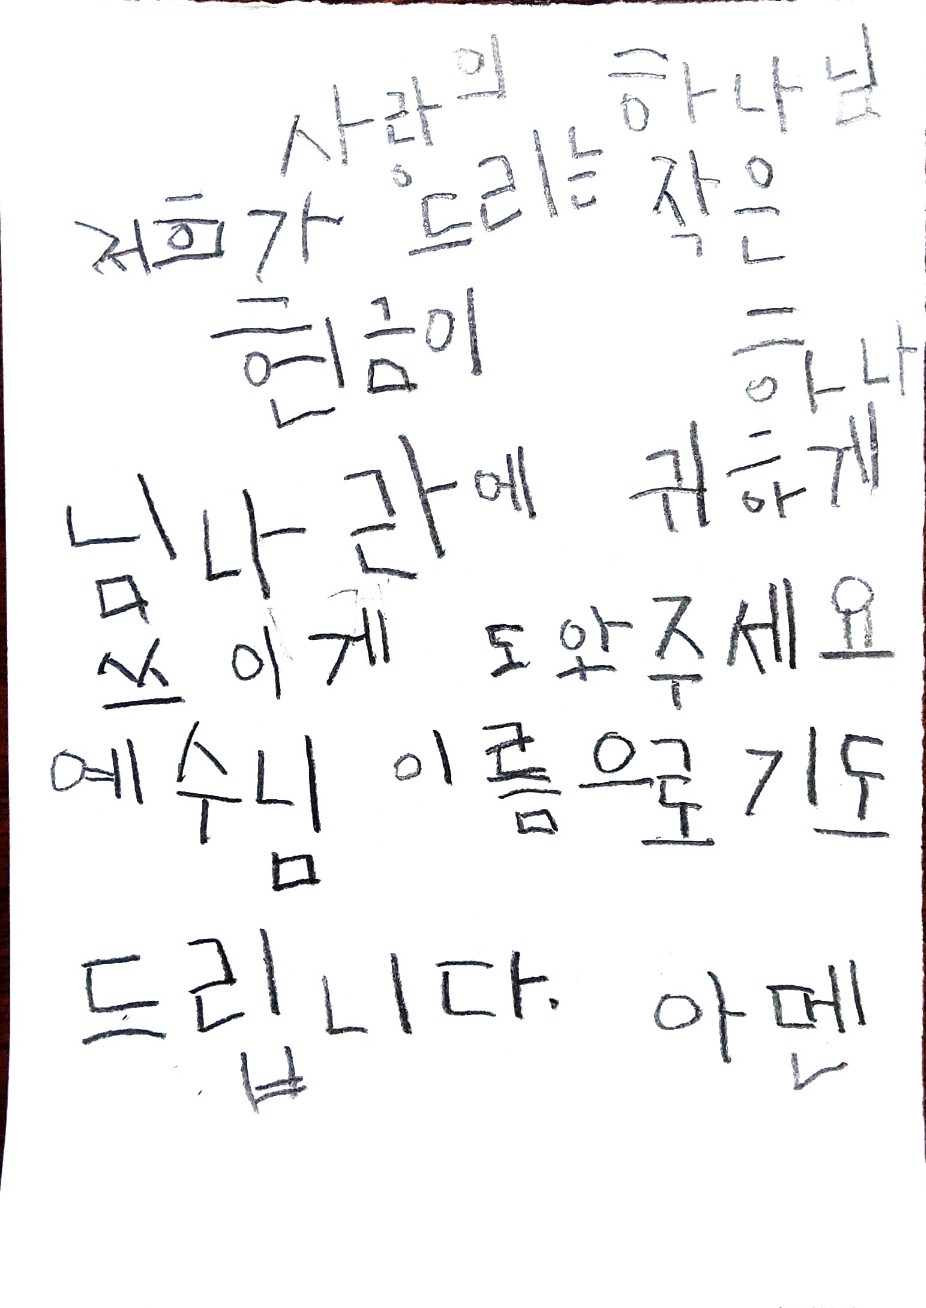 사랑의 하나님
저희가 드리는 작은
헌금이 하나
님나라에 귀하게
쓰이게 도와주세요
예수님 이름으로 기도
드립니다. 아멘